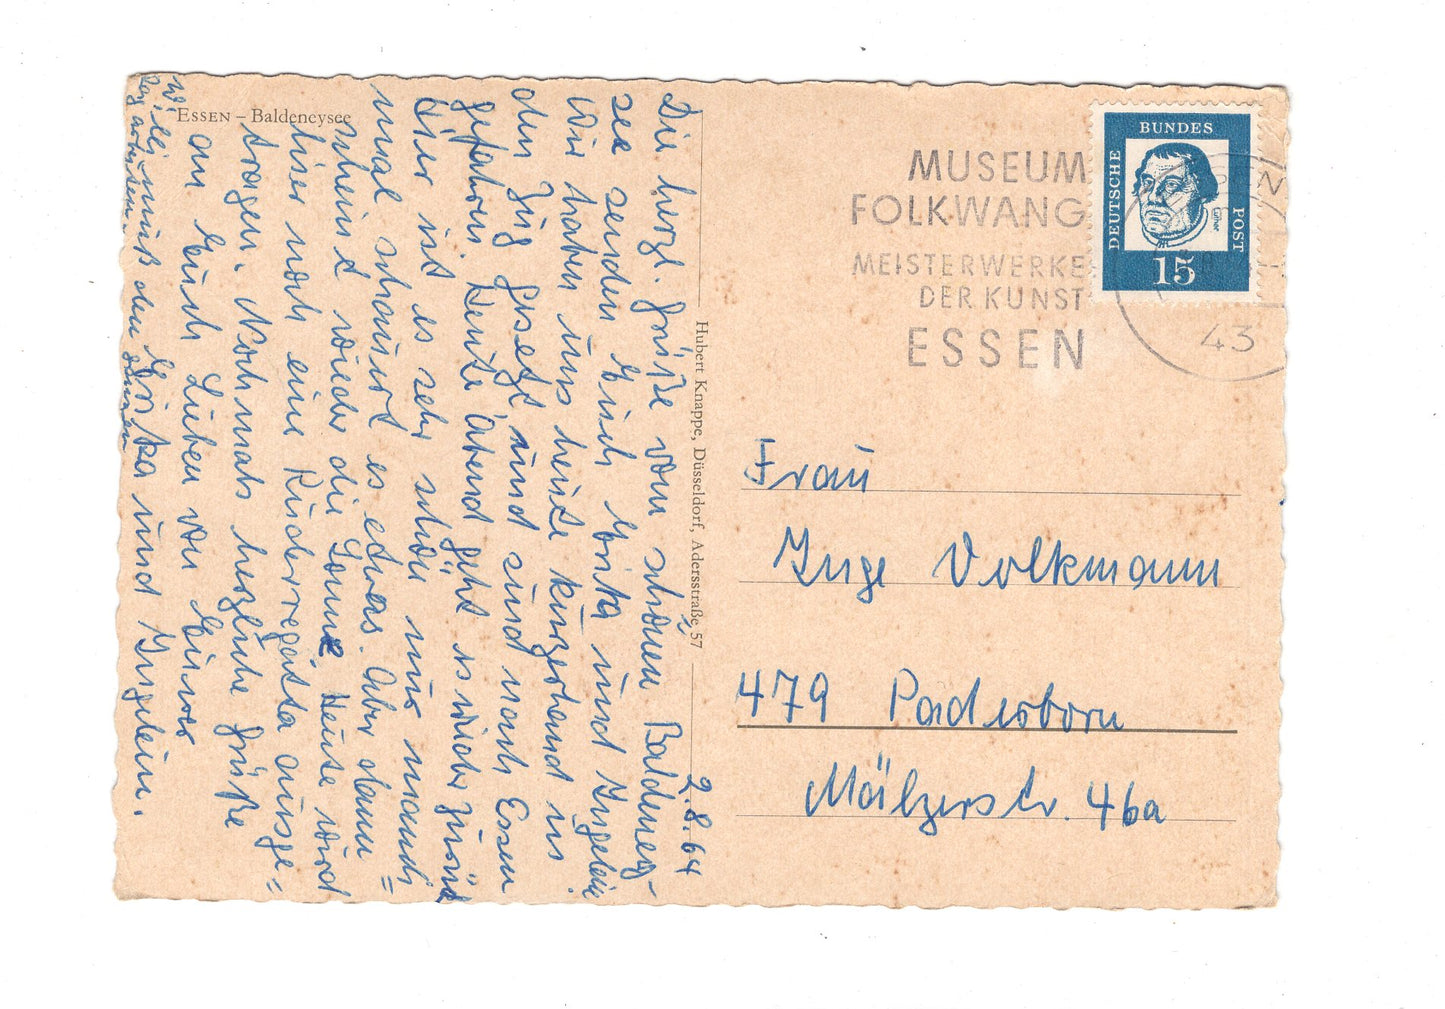 ESSEN – Baldeneysee
2.8.64
Die herzl. Grüße vom schönen Baldeney-
see senden Euch Erika und Ingelein
Wir haben uns heute kurzerhand in
den Zug gesetzt und sind nach Essen
gefahren. Heute abend geht es wieder zurück
Hier ist es sehr schön nur manch=
mal schauert es etwas. Aber dann
scheint wieder die Sonne. Heute wird
hier noch eine Ruderregatta ausge=
tragen. Nochmals herzliche Grüße
an Euch Lieben von Eurer
Erika und Ingelein.
Willi muß den
Tag arbeiten.
Hubert Knappe, Düsseldorf, Adersstraße 57
MUSEUM
FOLKWANG
MEISTERWERKE
DER KUNST
ESSEN
43
DEUTSCHE
BUNDES
POST
Luther
15
Frau
Inge Volkmann
479 Paderborn
Mälzerstr. 46a